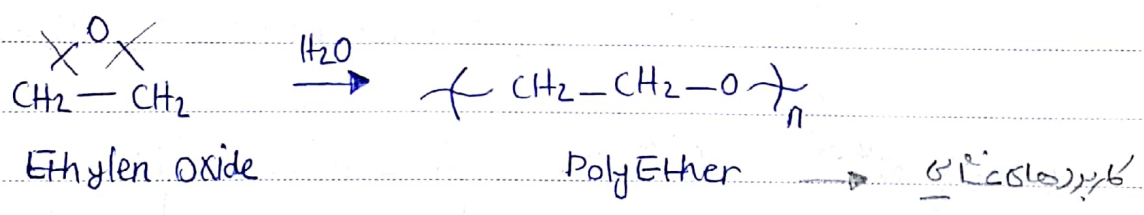 O
H2O
CH2 — CH2 → ( CH2 — CH2 — O )n
Ethylen oxide PolyEther → کاربردهای غشایی